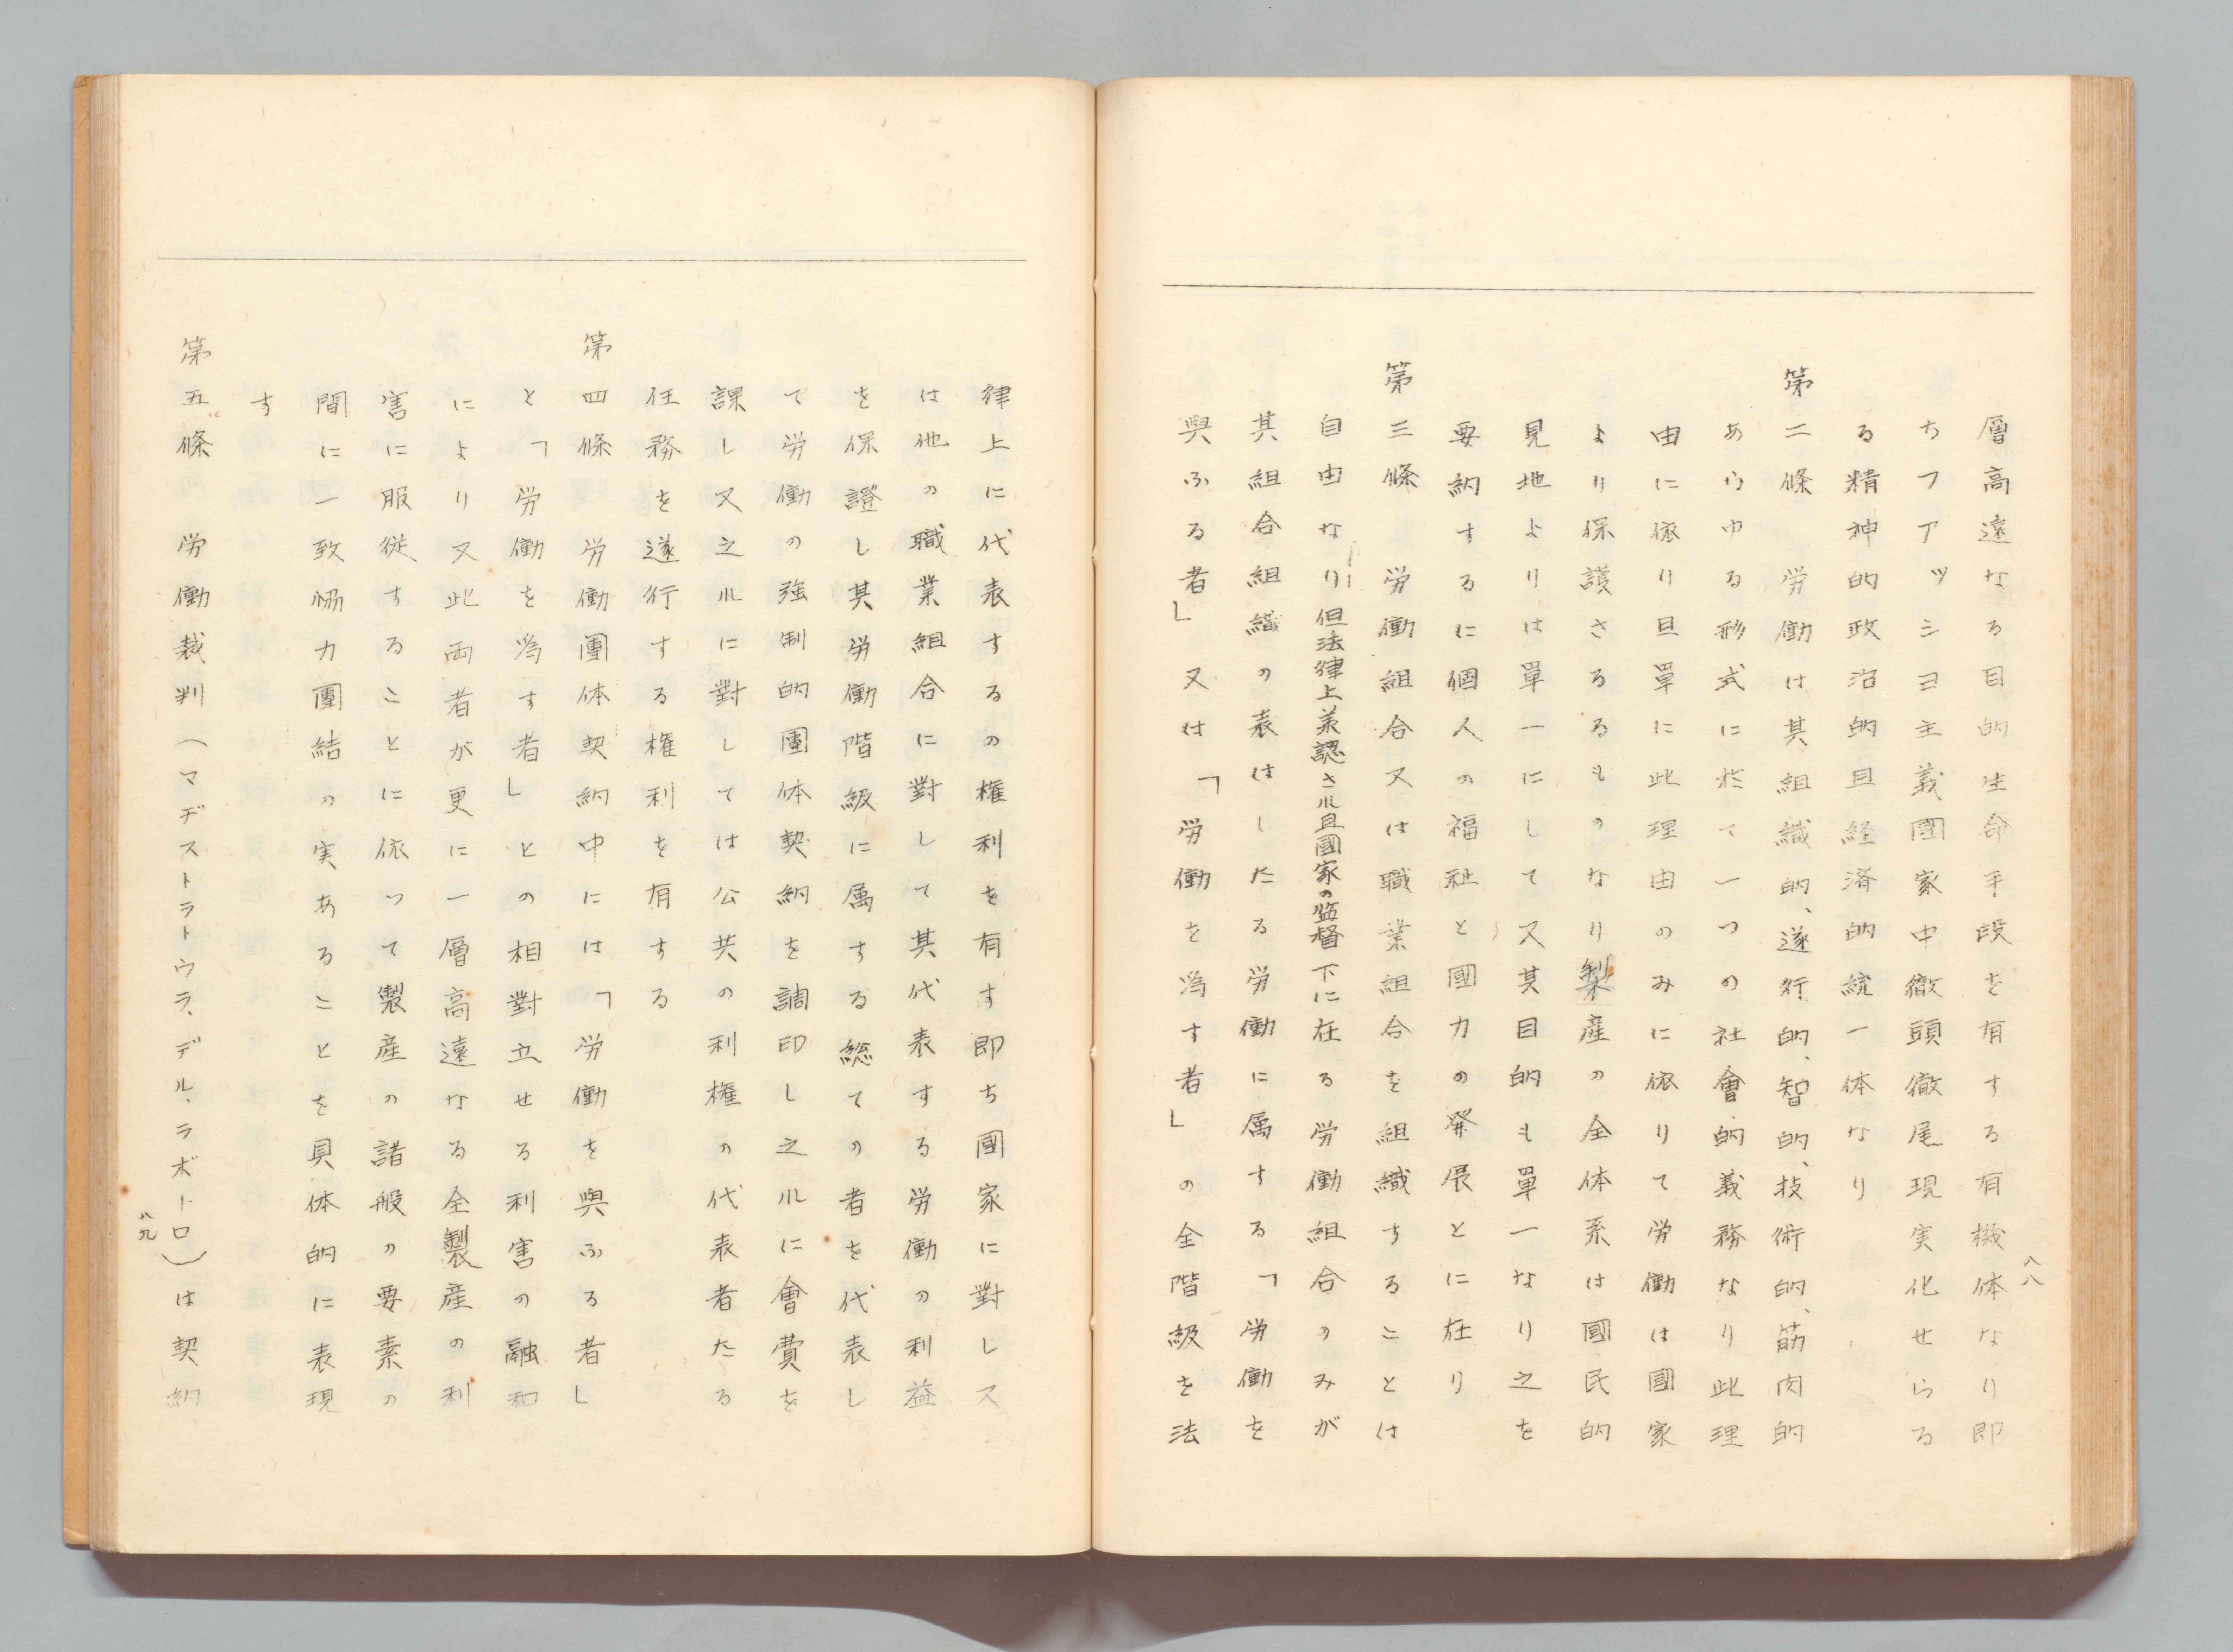 八八
層高遠なる目的生命手段を有する有機体なり即
ちフアッシヨ主義國家中徹頭徹尾現実化せらる
る精神的政治的且経済的統一体なり
第二條　労働は其組織的、遂行的、智的、技術的、筋肉的
あらゆる形式に於て一つの社會的義務なり此理
由に依り且單に此理由のみに依りて労働は國家
より保護さるるものなり製産の全体系は國民的
見地よりは單一にして又其目的も單一なり之を
要納するに個人の福祉と國力の発展とに在り
第三條　労働組合又は職業組合を組織することは
自由なり但法律上美認され且國家の監督下に在る労働組合のみが
其組合組織の表はしたる労働に属する「労働を
與ふる者」又は「労働を為す者」の全階級を法
律上に代表するの権利を有す即ち國家に對し又
は他の職業組合に對して其代表する労働の利益
を保證し其労働階級に属する総ての者を代表し
て労働の強制的團体契約を調印し之れに會費を
課し又之れに對しては公共の利権の代表者たる
任務を遂行する権利を有する
第四條　労働團体契約中には「労働を與ふる者」
と「労働を為す者」との相對立せる利害の融和
により又此両者が更に一層高遠なる全製産の利
害に服従することに依つて製産の諸般の要素の
間に一致協力團結の実あることを具体的に表現
す
第五條　労働裁判（マヂストラトウラ、デル、ラボーロ）は契約
八九